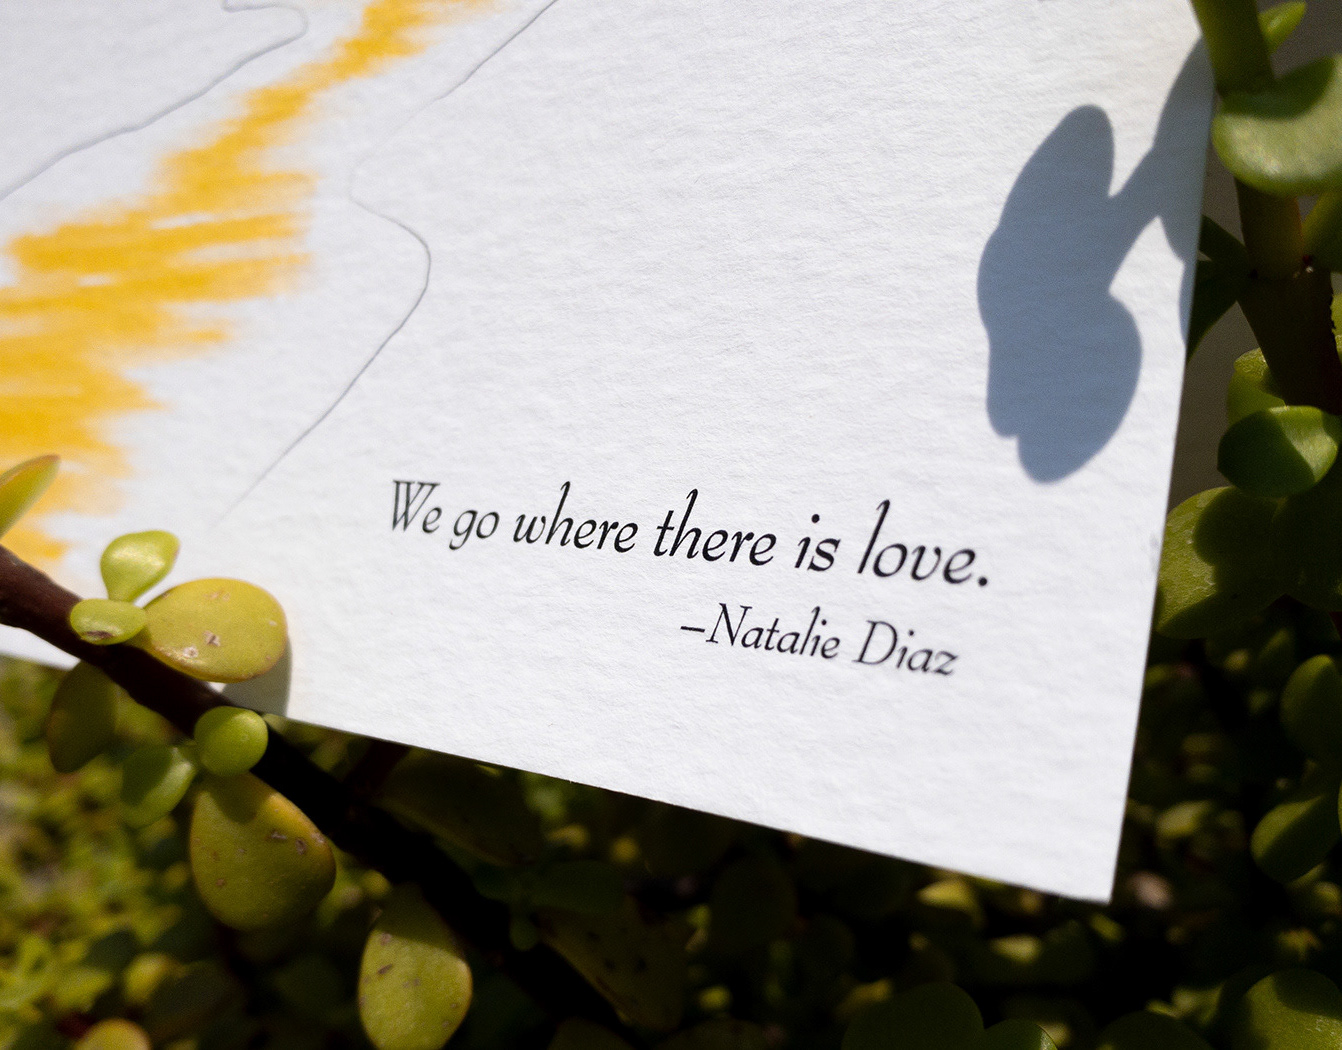 We go where there is love.
–Natalie Diaz